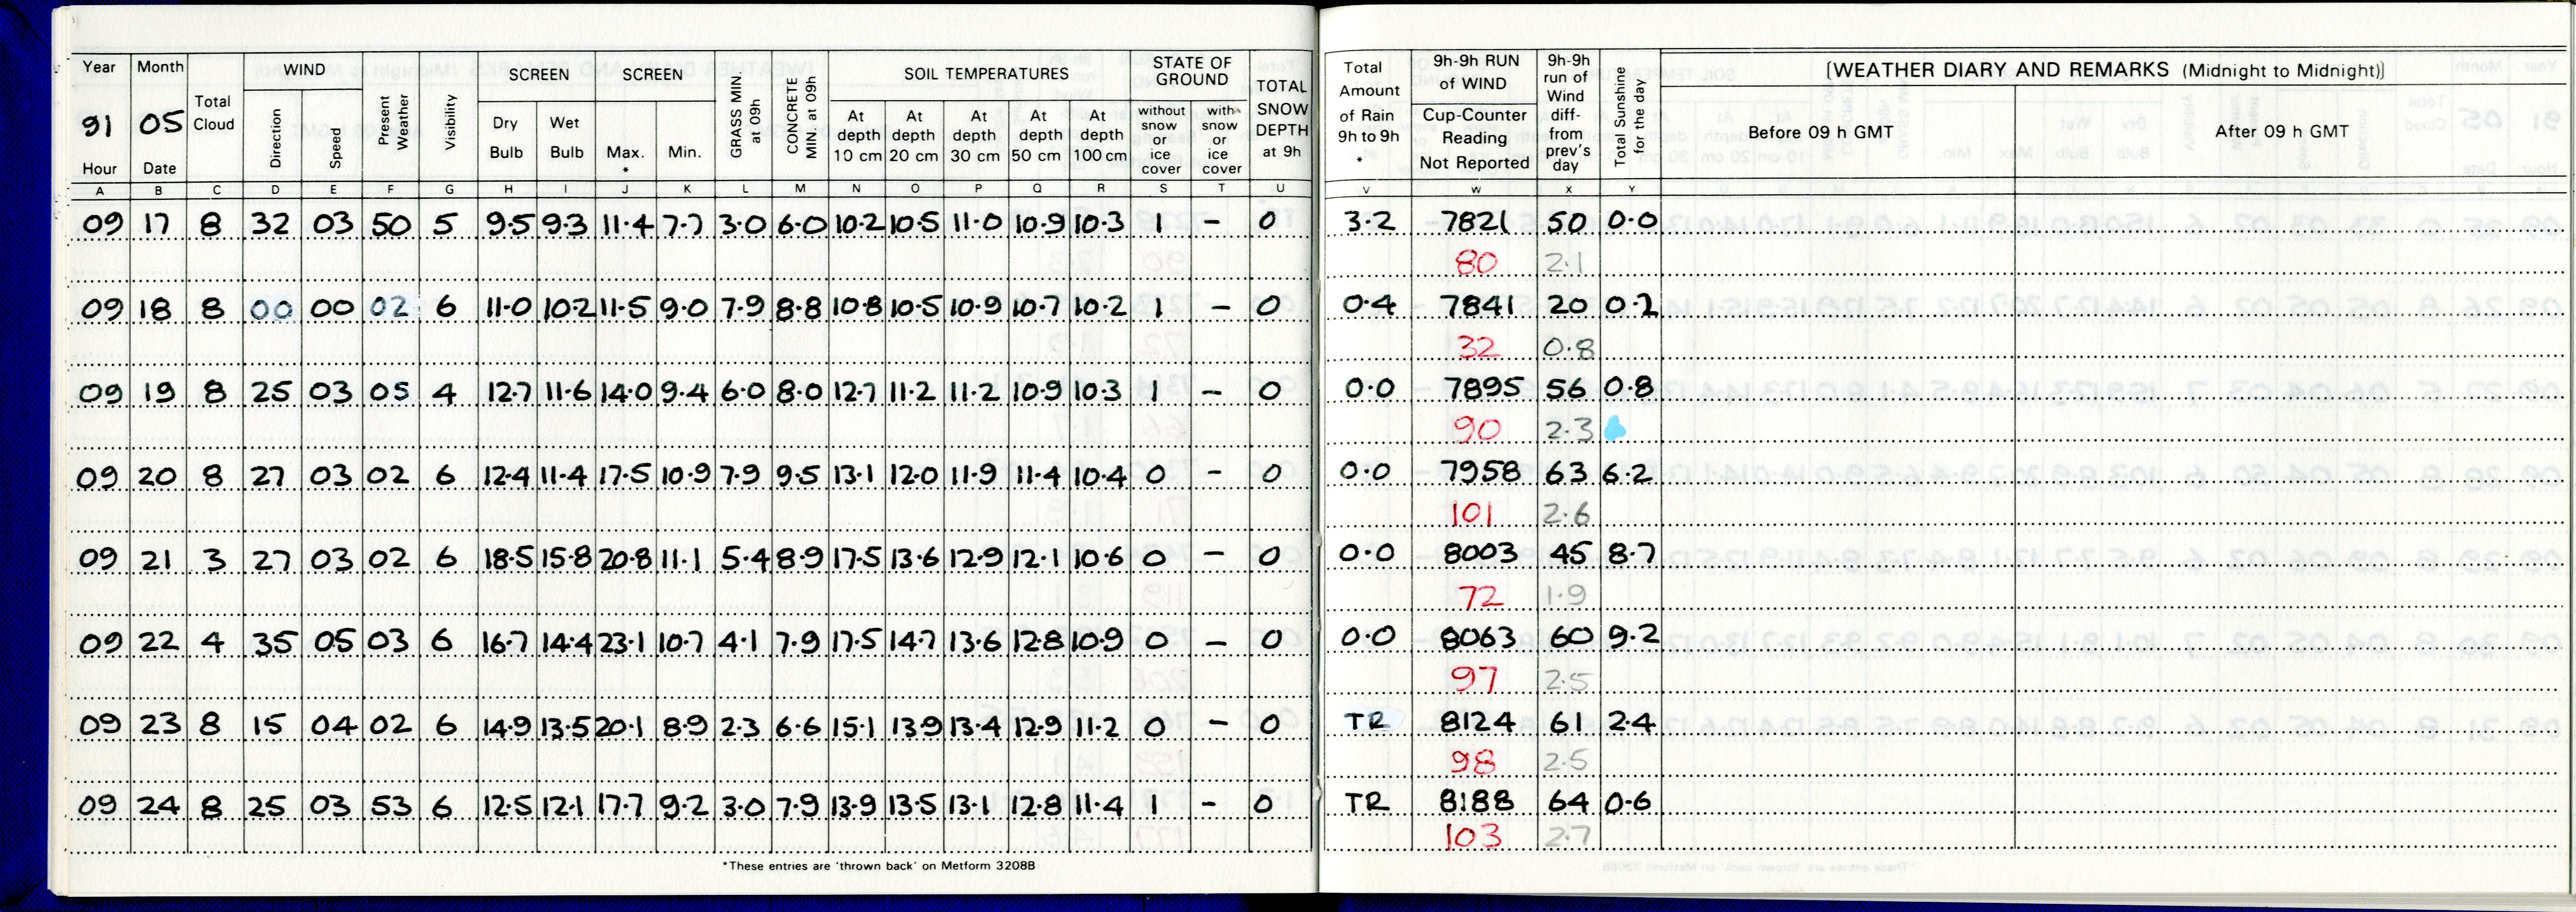 Year Month WIND SCREEN SCREEN SOIL TEMPERATURES STATE OF GROUND
91 05 Total Cloud Direction Speed Present Weather Visibility Dry Bulb Wet Bulb Max. * Min. GRASS MIN. at 09h CONCRETE MIN. at 09h At depth 10 cm At depth 20 cm At depth 30 cm At depth 50 cm At depth 100 cm without snow or ice cover with snow or ice cover TOTAL SNOW DEPTH at 9h
Hour Date
A B C D E F G H I J K L M N O P Q R S T U
09 17 8 32 03 50 5 9.5 9.3 11.4 7.7 3.0 6.0 10.2 10.5 11.0 10.9 10.3 1 – 0
09 18 8 00 00 02 6 11.0 10.2 11.5 9.0 7.9 8.8 10.8 10.5 10.9 10.7 10.2 1 – 0
09 19 8 25 03 05 4 12.7 11.6 14.0 9.4 6.0 8.0 12.7 11.2 11.2 10.9 10.3 1 – 0
09 20 8 27 03 02 6 12.4 11.4 17.5 10.9 7.9 9.5 13.1 12.0 11.9 11.4 10.4 0 – 0
09 21 3 27 03 02 6 18.5 15.8 20.8 11.1 5.4 8.9 17.5 13.6 12.9 12.1 10.6 0 – 0
09 22 4 35 05 03 6 16.7 14.4 23.1 10.7 4.1 7.9 17.5 14.7 13.6 12.8 10.9 0 – 0
09 23 8 15 04 02 6 14.9 13.5 20.1 8.9 2.3 6.6 15.1 13.9 13.4 12.9 11.2 0 – 0
09 24 8 25 03 53 6 12.5 12.1 17.7 9.2 3.0 7.9 13.9 13.5 13.1 12.8 11.4 1 – 0
*These entries are 'thrown back' on Metform 3208B
Total Amount of Rain 9h to 9h * 9h-9h RUN of WIND Cup-Counter Reading Not Reported 9h-9h run of Wind diff- from prev's day Total Sunshine for the day [WEATHER DIARY AND REMARKS (Midnight to Midnight)]
Before 09 h GMT After 09 h GMT
V W X Y
3.2 7821 50 0.0
80 2.1
0.4 7841 20 0.2
32 0.8
0.0 7895 56 0.8
90 2.3
0.0 7958 63 6.2
101 2.6
0.0 8003 45 8.7
72 1.9
0.0 8063 60 9.2
97 2.5
TR 8124 61 2.4
98 2.5
TR 8188 64 0.6
103 2.7